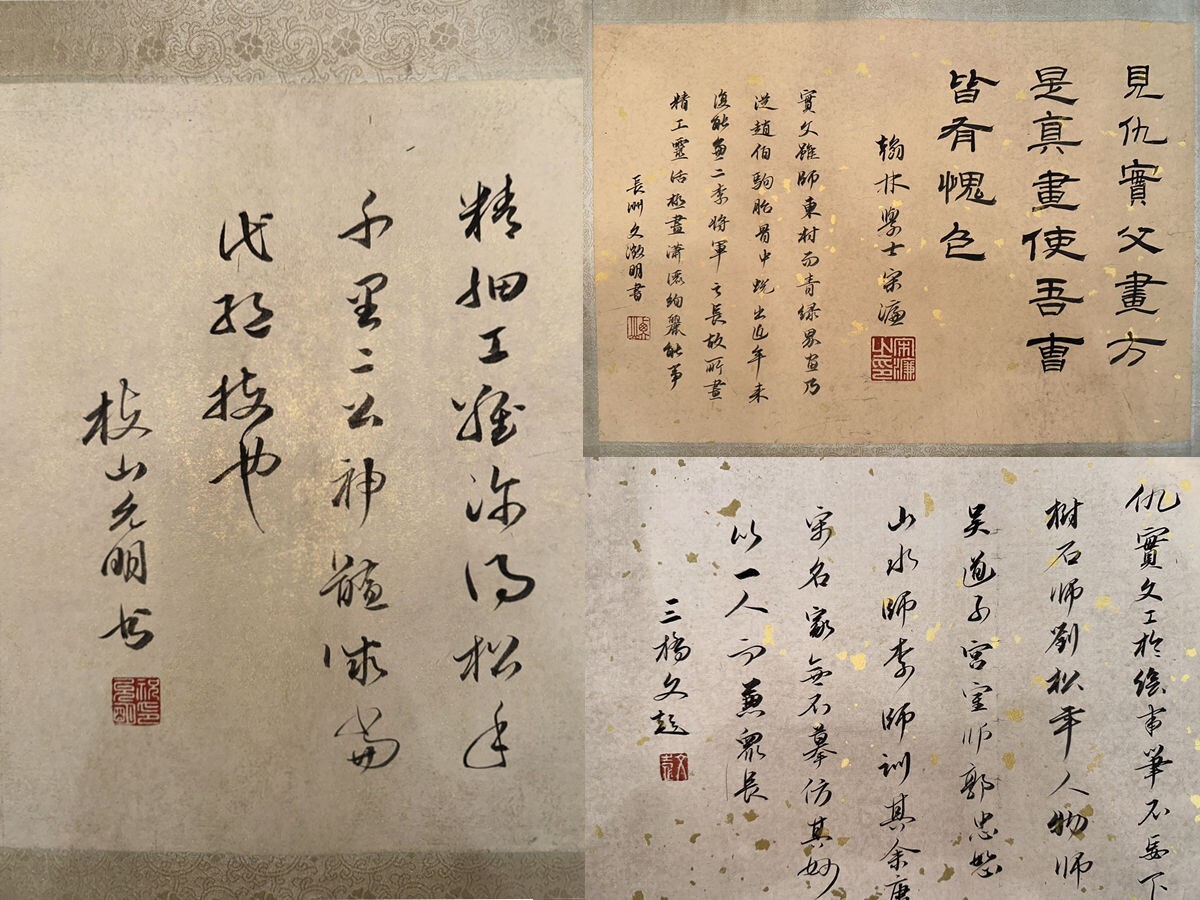 精細工雅深得松年
千里二公神髓誠當
代絕技也
枝山允明書
祝允明印
見仇實父畫方
是真畫使吾曹
皆有愧色
翰林學士宋濂
宋濂之印
實父雖師東村而青綠界畫乃
從趙伯駒胎骨中蛻出近年來
復能兼二李將軍之長故所畫
精工靈活極盡瀟灑絢麗能事
長洲文徵明書
仇實父工於繪事筆不妄下
樹石師劉松年人物師
吳道子宮室師郭忠恕
山水師李師訓其余唐
宋名家無不摹仿其妙
以一人而兼眾長
三橋文彭